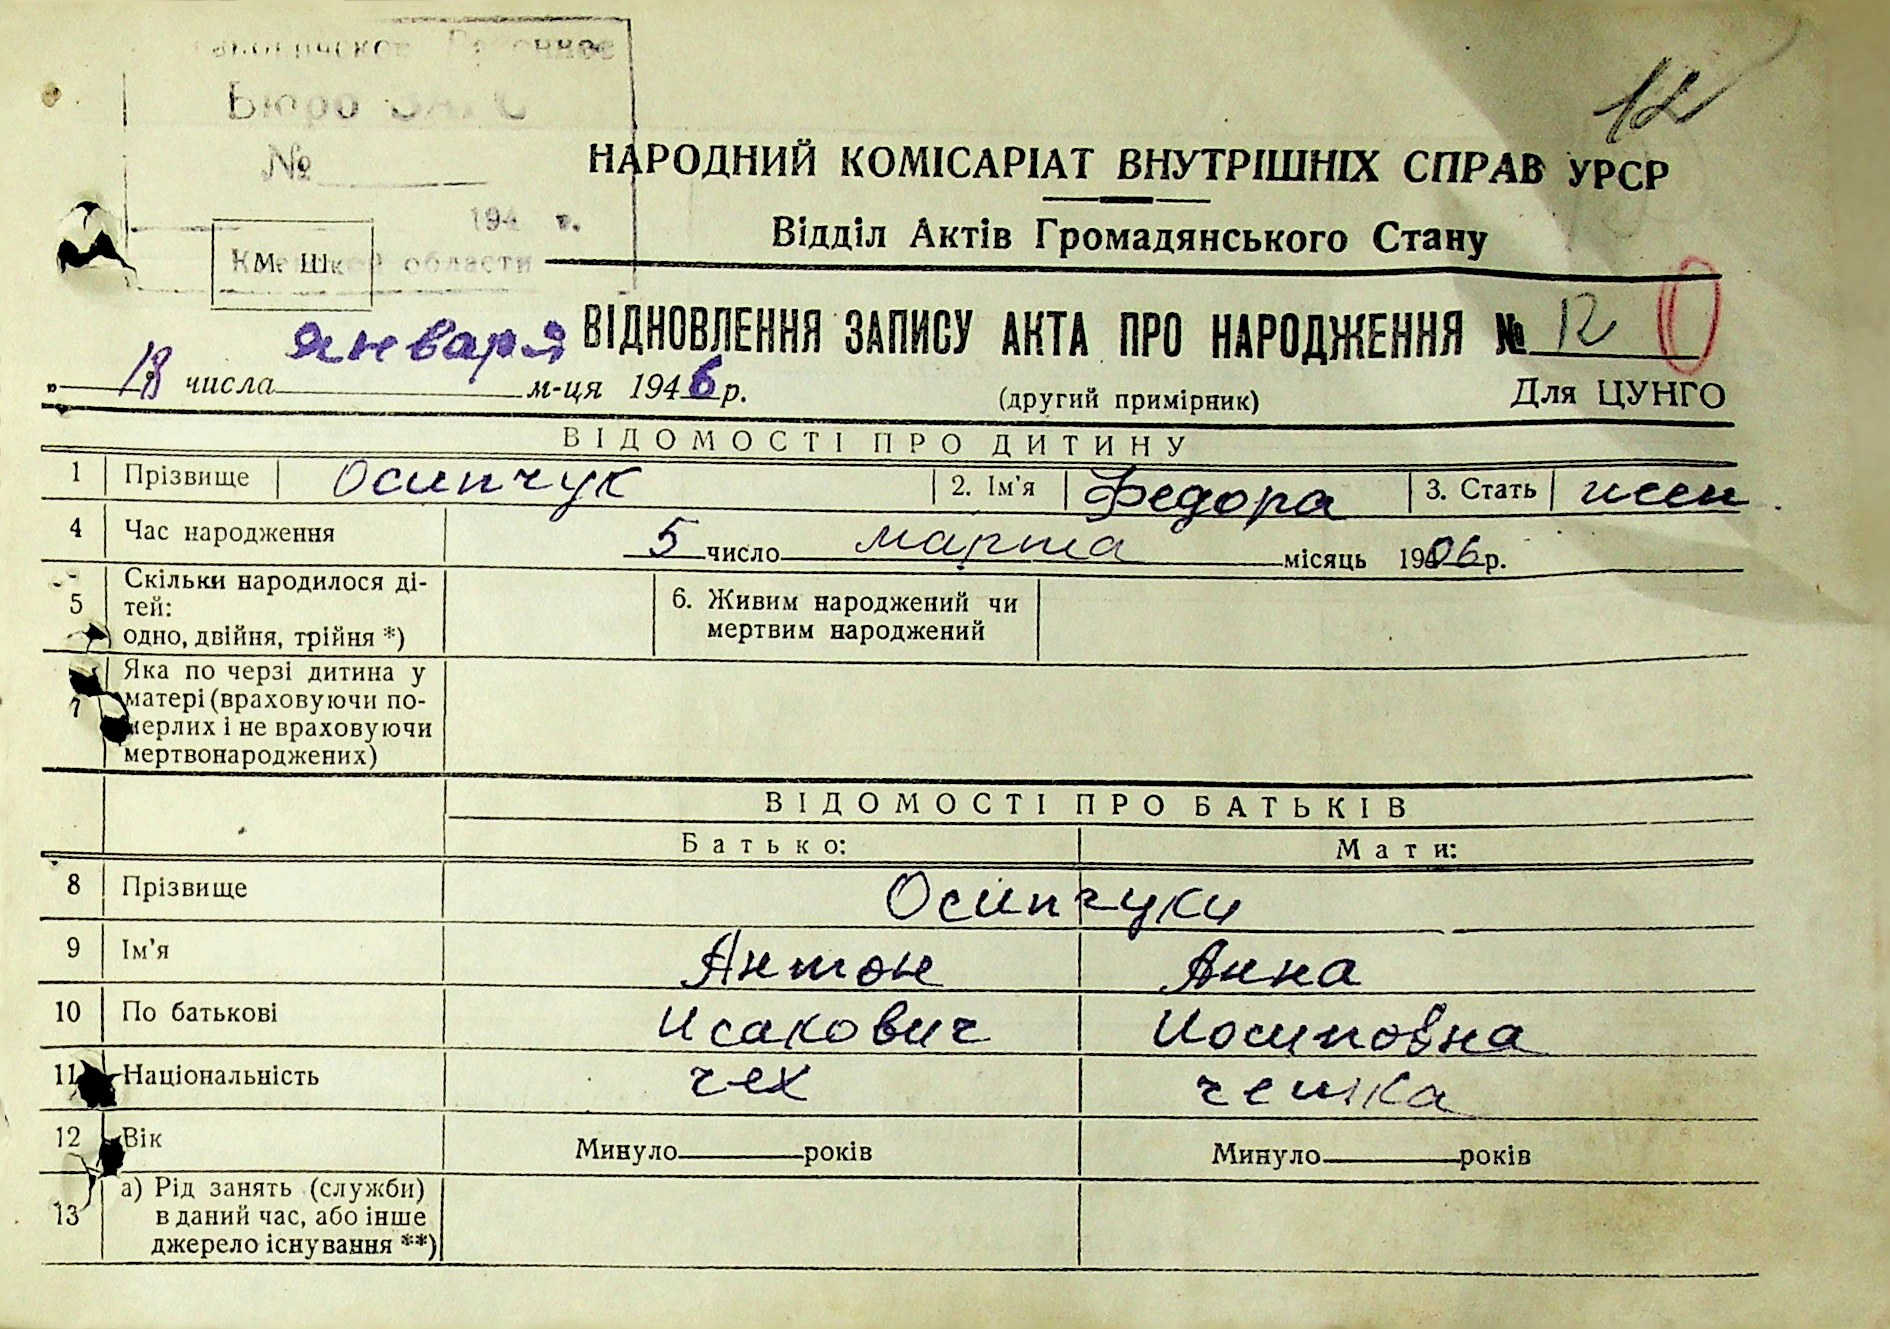 Районное
Бюро ЗАГС
№
194 г.
области
М. Ш.
12
НАРОДНИЙ КОМІСАРІАТ ВНУТРІШНІХ СПРАВ УРСР
Відділ Актів Громадянського Стану
ВІДНОВЛЕННЯ ЗАПИСУ АКТА ПРО НАРОДЖЕННЯ № 12
„ 18 числа января м-ця 1946 р. (другий примірник) Для ЦУНГО
ВІДОМОСТІ ПРО ДИТИНУ
1 Прізвище Осипчук 2. Ім'я Федора 3. Стать жен
4 Час народження 5 число марта місяць 1906 р.
5 Скільки народилося ді-
тей:
одно, двійня, трійня *)
6. Живим народжений чи
мертвим народжений
7 Яка по черзі дитина у
матері (враховуючи по-
мерлих і не враховуючи
мертвонароджених)
ВІДОМОСТІ ПРО БАТЬКІВ
Батько: Мати:
8 Прізвище Осипчуки
9 Ім'я Антон Анна
10 По батькові Исакович Иосиповна
11 Національність чех чешка
12 Вік Минуло років Минуло років
13 а) Рід занять (служби)
в даний час, або інше
джерело існування **)